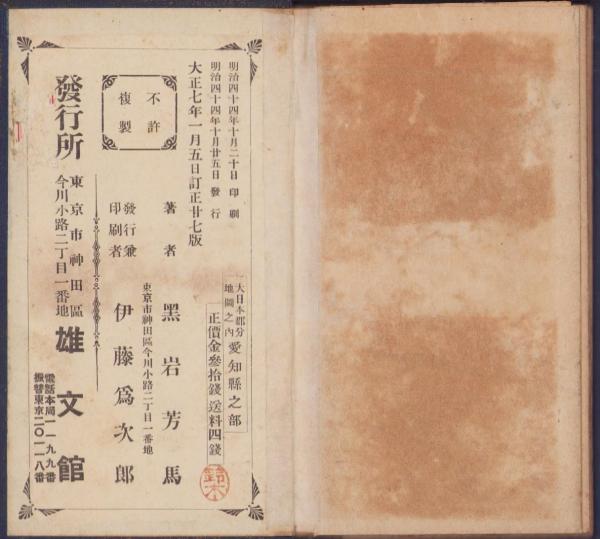 明治四十四年十月二十日印刷
明治四十四年十月廿五日發行
大正七年一月五日訂正廿七版
不許
複製
大日本郡分
地圖之內
愛知縣之部
正價金參拾錢送料四錢
著者
黑岩芳馬
東京市神田區今川小路二丁目一番地
發行兼
印刷者
伊藤爲次郎
發行所
東京市神田區
今川小路二丁目一番地
雄文館
電話本局一一九九番
振替東京二〇一一八番
鈴木